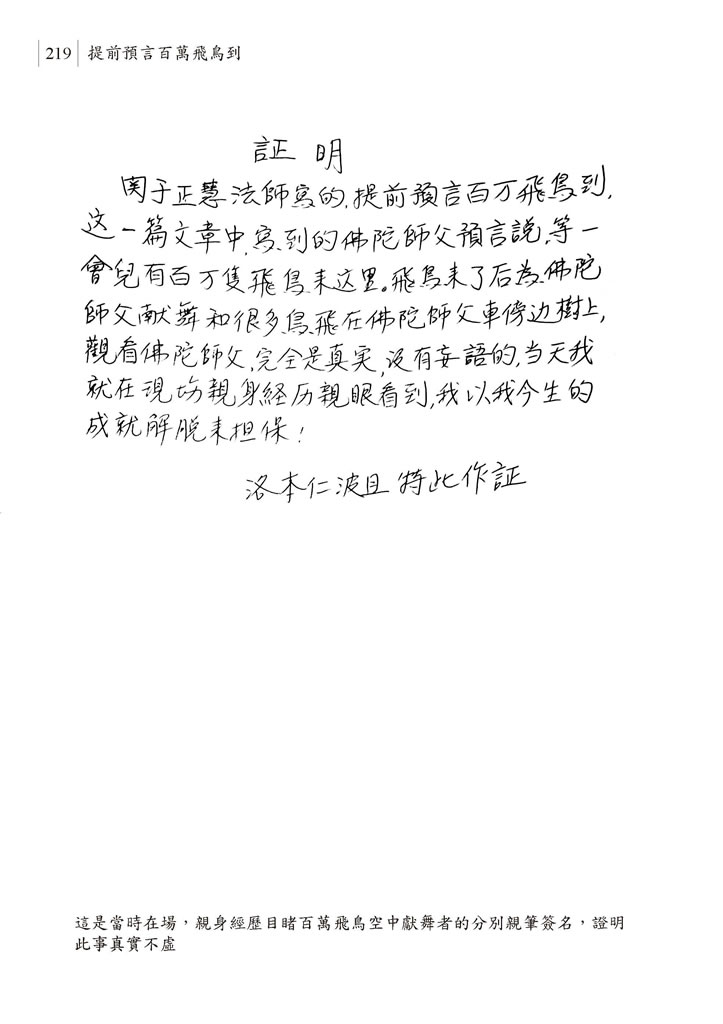 219 提前預言百萬飛鳥到
証 明
関于正慧法師寫的,提前預言百万飛鳥到,
这一篇文章中,寫到的佛陀師父預言說,等一
會兒有百万隻飛鳥来这里。飛鳥来了后為佛陀
師父献舞和很多鳥飛在佛陀師父車傍边樹上,
觀看佛陀師父,完全是真実,没有妄語的,当天我
就在現场親身経历親眼看到,我以我今生的
成就解脱来担保!
洛本仁波且 特此作証
這是當時在場,親身經歷目睹百萬飛鳥空中獻舞者的分別親筆簽名,證明
此事真實不虛